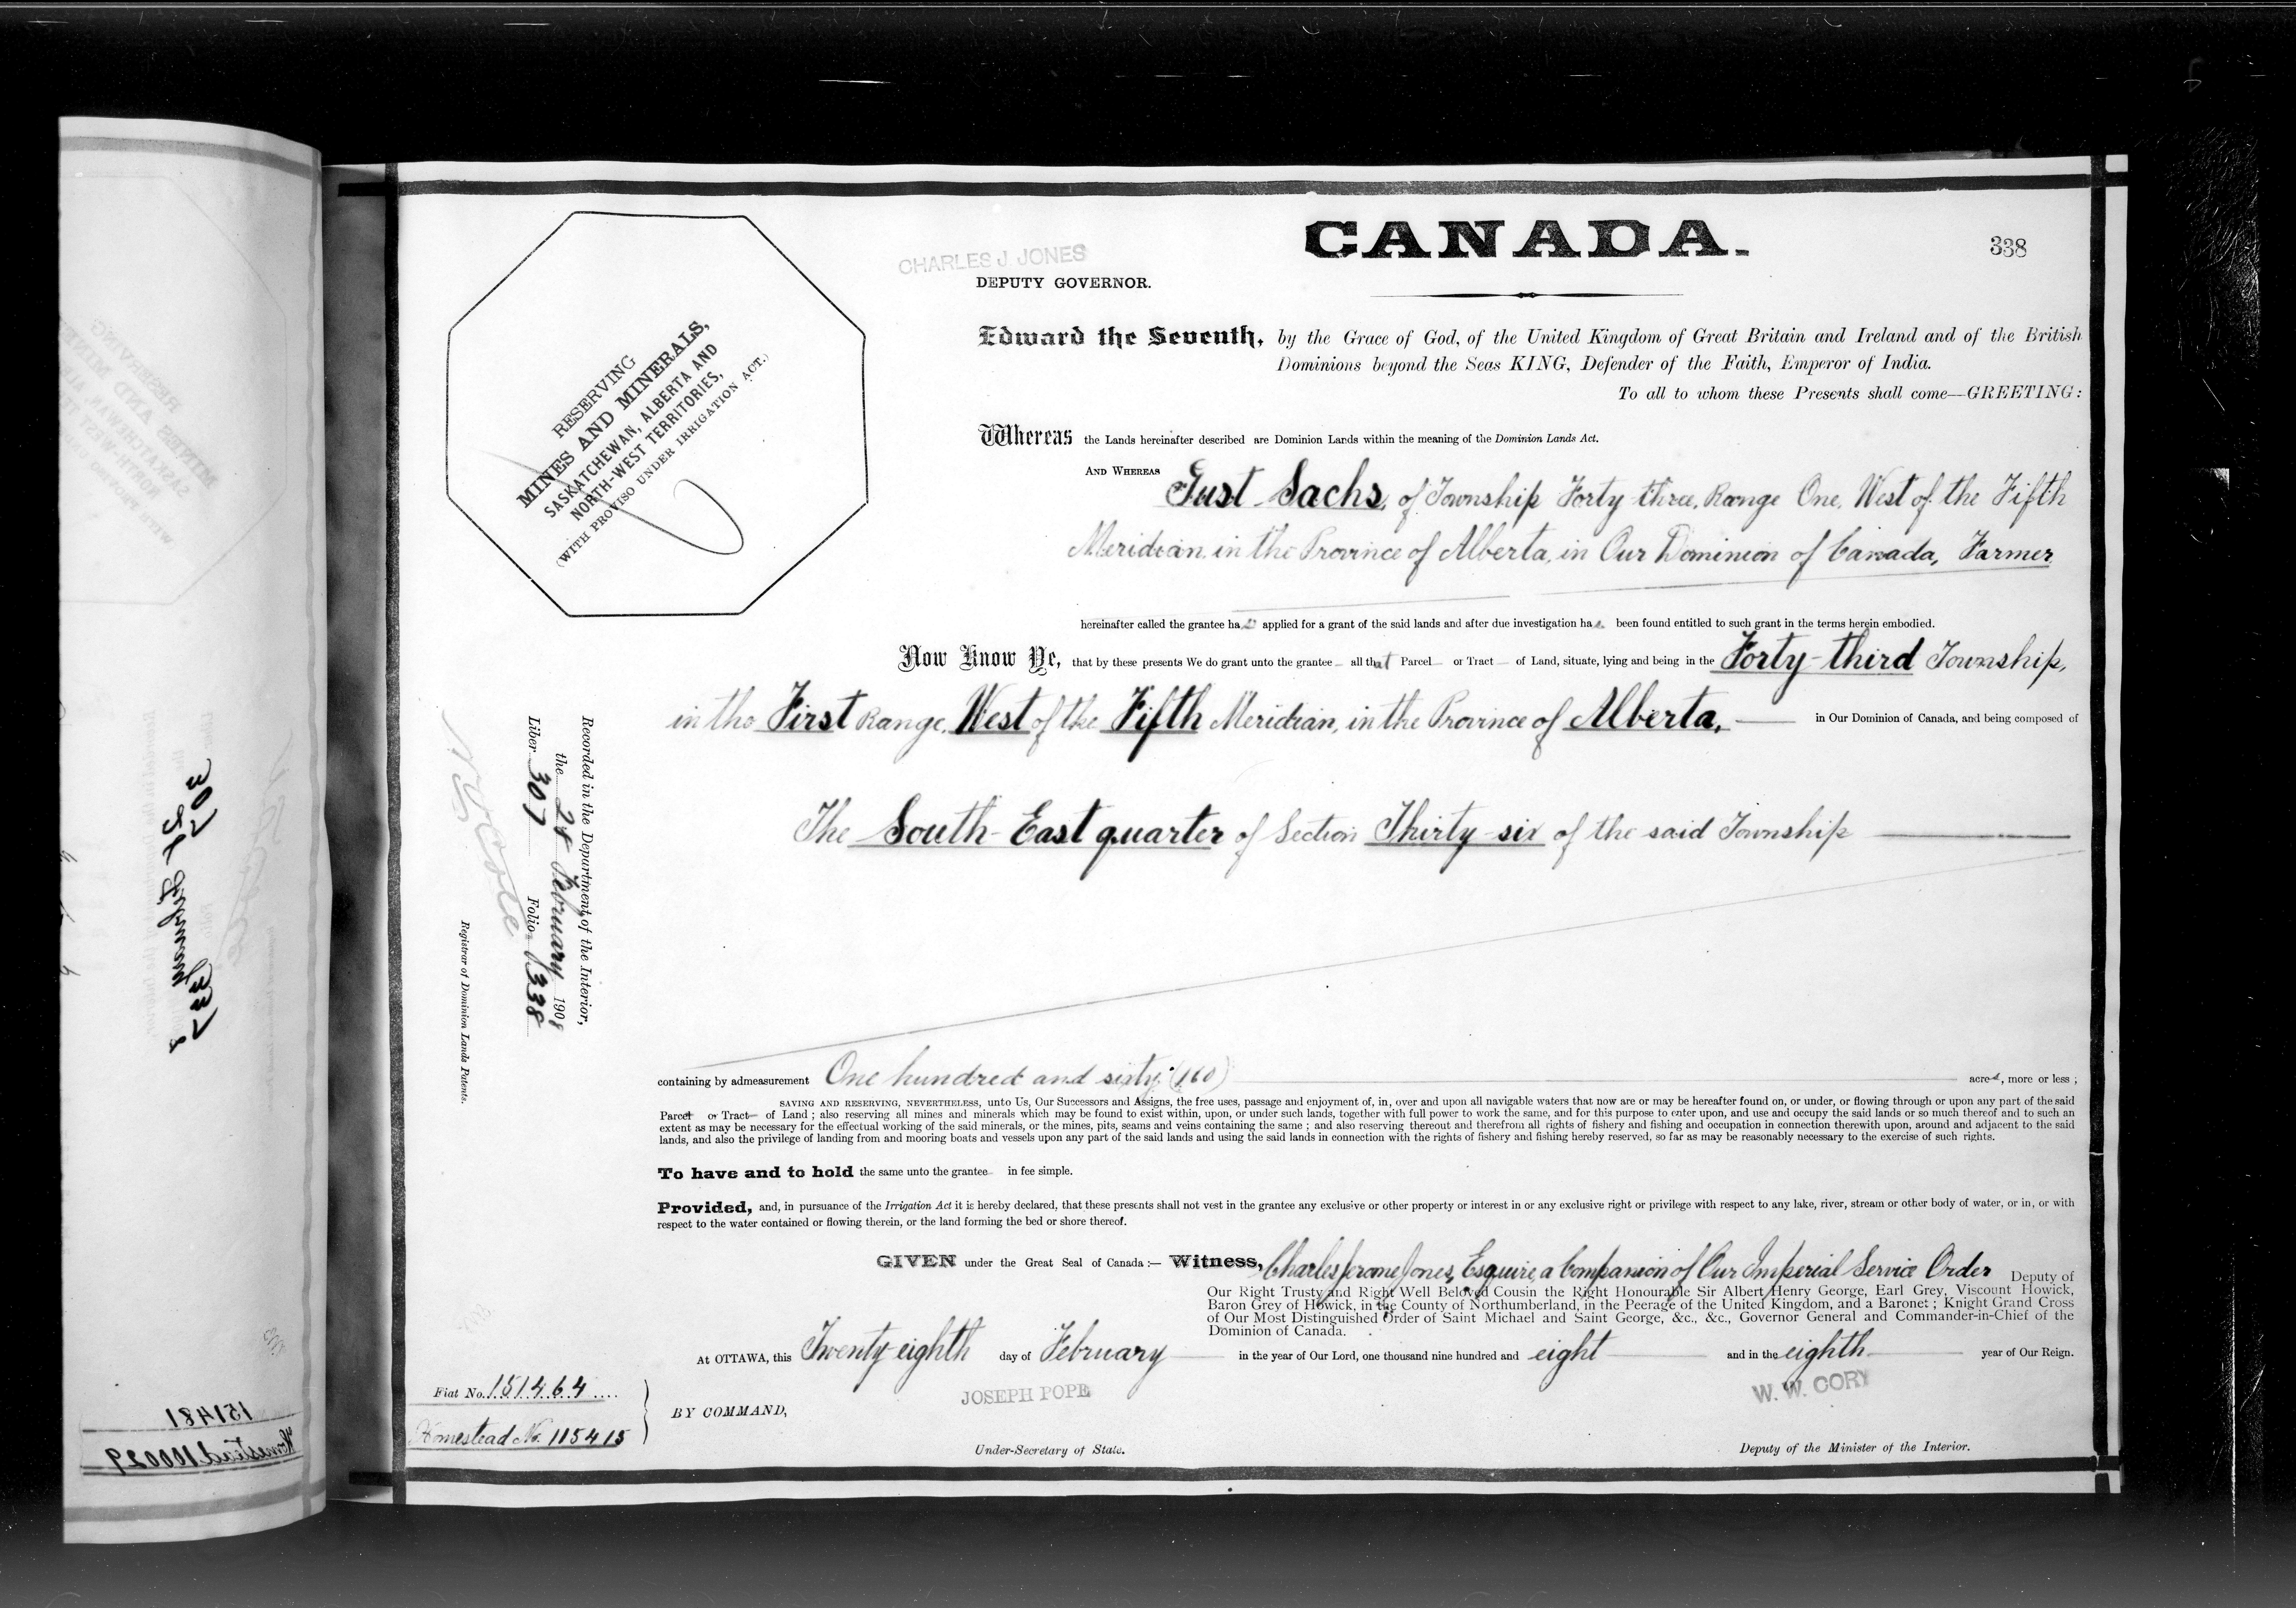 CANADA.
338
CHARLES J. JONES
DEPUTY GOVERNOR.
RESERVING
MINES AND MINERALS,
SASKATCHEWAN, ALBERTA AND
NORTH-WEST TERRITORIES,
(WITH PROVISO UNDER IRRIGATION ACT.)
Edward the Seventh, by the Grace of God, of the United Kingdom of Great Britain and Ireland and of the British
Dominions beyond the Seas KING, Defender of the Faith, Emperor of India.
To all to whom these Presents shall come—GREETING:
Whereas the Lands hereinafter described are Dominion Lands within the meaning of the Dominion Lands Act.
AND WHEREAS Just Sachs, of Township Forty-three, Range One, West of the Fifth
Meridian, in the Province of Alberta, in Our Dominion of Canada, Farmer
hereinafter called the grantee has applied for a grant of the said lands and after due investigation has been found entitled to such grant in the terms herein embodied.
Now Know Ye, that by these presents We do grant unto the grantee all that Parcel or Tract of Land, situate, lying and being in the Forty-third Township,
in the First Range, West of the Fifth Meridian, in the Province of Alberta, in Our Dominion of Canada, and being composed of
The South-East quarter of Section Thirty-six of the said Township
Recorded in the Department of the Interior,
the 28 February 1908
Liber 307 Folio 338
N O Cote
Registrar of Dominion Lands Patents.
containing by admeasurement One hundred and sixty (160) acres, more or less ;
SAVING AND RESERVING, NEVERTHELESS, unto Us, Our Successors and Assigns, the free uses, passage and enjoyment of, in, over and upon all navigable waters that now are or may be hereafter found on, or under, or flowing through or upon any part of the said
Parcel or Tract of Land ; also reserving all mines and minerals which may be found to exist within, upon, or under such lands, together with full power to work the same, and for this purpose to enter upon, and use and occupy the said lands or so much thereof and to such an
extent as may be necessary for the effectual working of the said minerals, or the mines, pits, seams and veins containing the same ; and also reserving thereout and therefrom all rights of fishery and fishing and occupation in connection therewith upon, around and adjacent to the said
lands, and also the privilege of landing from and mooring boats and vessels upon any part of the said lands and using the said lands in connection with the rights of fishery and fishing hereby reserved, so far as may be reasonably necessary to the exercise of such rights.
To have and to hold the same unto the grantee in fee simple.
Provided, and, in pursuance of the Irrigation Act it is hereby declared, that these presents shall not vest in the grantee any exclusive or other property or interest in or any exclusive right or privilege with respect to any lake, river, stream or other body of water, or in, or with
respect to the water contained or flowing therein, or the land forming the bed or shore thereof.
GIVEN under the Great Seal of Canada :— Witness, Charles Jerome Jones, Esquire, a Companion of Our Imperial Service Order Deputy of
Our Right Trusty and Right Well Beloved Cousin the Right Honourable Sir Albert Henry George, Earl Grey, Viscount Howick,
Baron Grey of Howick, in the County of Northumberland, in the Peerage of the United Kingdom, and a Baronet ; Knight Grand Cross
of Our Most Distinguished Order of Saint Michael and Saint George, &c., &c., Governor General and Commander-in-Chief of the
Dominion of Canada.
At OTTAWA, this Twenty-eighth day of February in the year of Our Lord, one thousand nine hundred and eight and in the eighth year of Our Reign.
Fiat No. 151464
Homestead No. 115415
BY COMMAND,
JOSEPH POPE
Under-Secretary of State.
W. W. CORY
Deputy of the Minister of the Interior.
307
28 February
337
151481
Homestead 100029